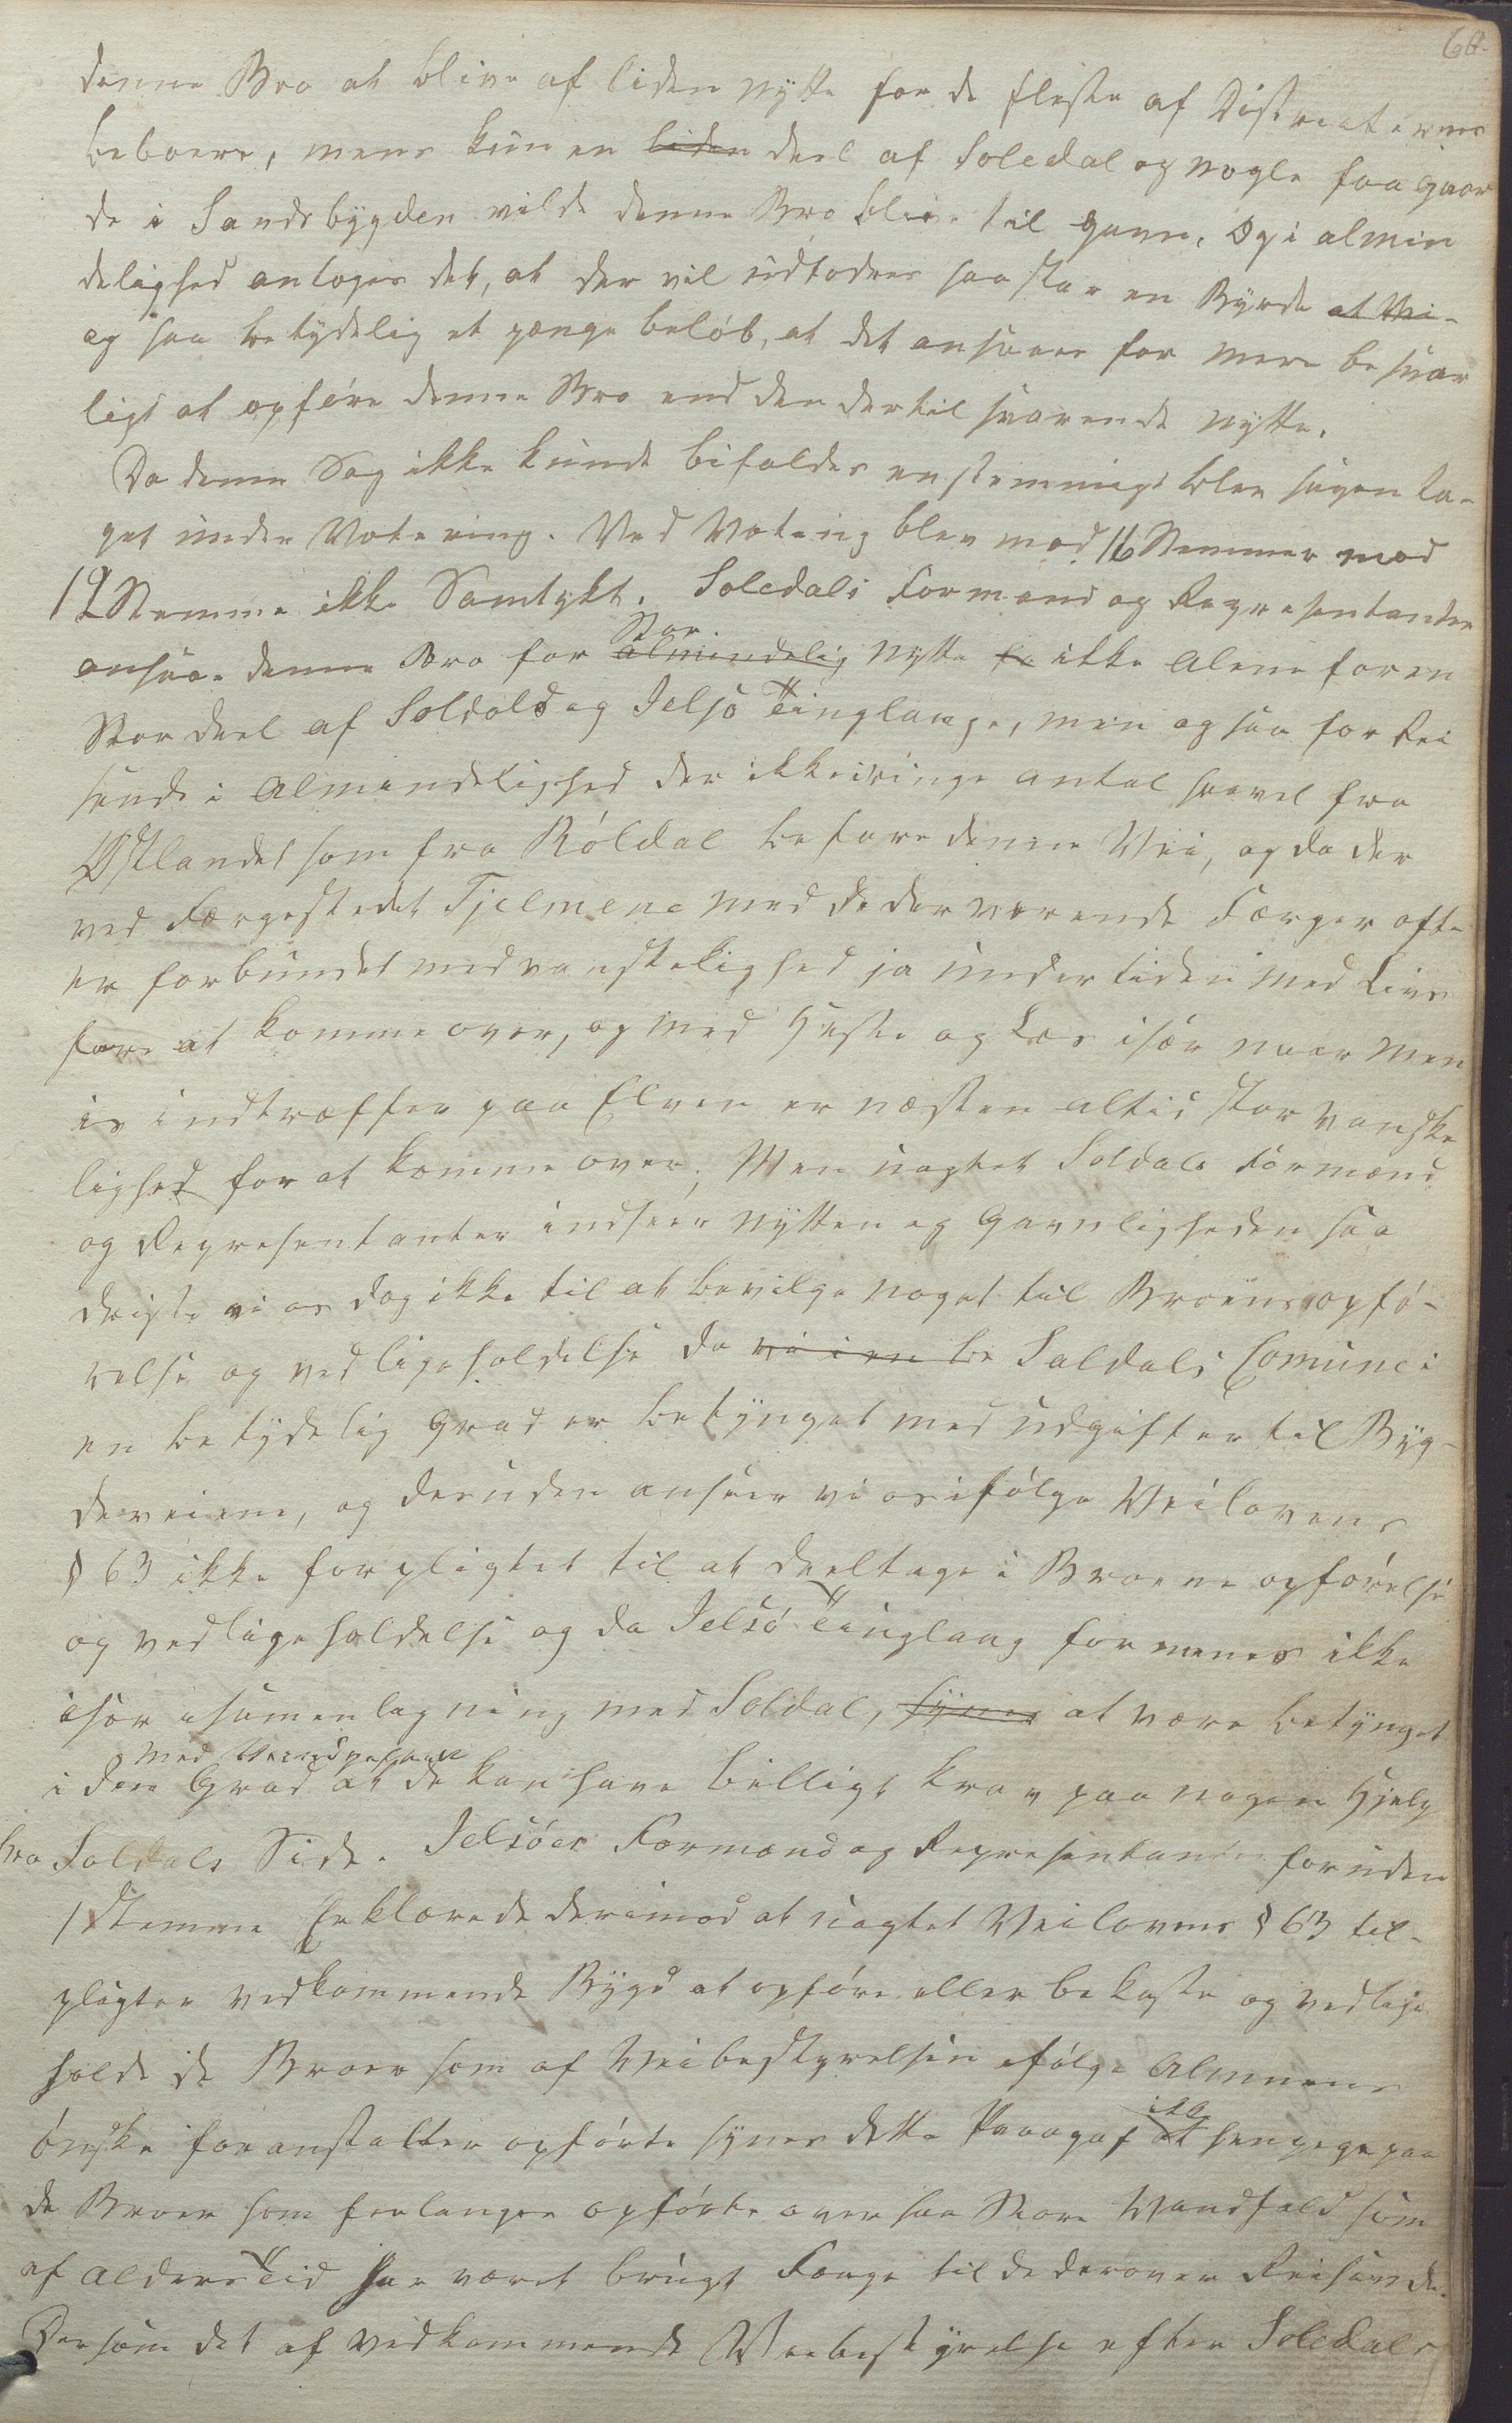 denne Bro at blive af liden nytte for de fleste af Districternes
beboere, mens kun en liden deel af Soledal og nogle faa gaar
de i Sandsbygden vilde denne Bro blive til gavn, Og i almin
delighed antoges det, at der vil udfodres saa stor en Byrde at Vei-
og saa betydelig et penge beløb, at det ansaaes for mere besvær
ligt at opføre denne Bro end den dertil svarende nytte.
Da denne Sag ikke kunde bifaldes enstemmigt blev sagen ta-
get under Votering. Ved Voteing blev mod 16 Stemmer mod
12 Stemme ikke Samtykt. Soledals Formænd og Representanter
ansaae denne Bro for almindelig Stor nytte ikke alene for en
Stor deel af Soldals og Jelsø Tinglauge, men ogsaa for Rei
sende i Almindelighed der ikke ringe antal saavel fra
Østlandet som fra Røldal befare denne Vei, og da der
ved Færgestedet Tjelmene med de derværende Færger ofte
er forbundet med vanskelighed ja undertiden med Livs
fare at komme over, og med Heste og Læs især naar Men
is indtræffer paa Elven er næsten altid stor vanske
lighed for at komme over; Men uagtet Soldals Formænd
og Representanter indseer nytten og Gavnligheden saa
driste vi os dog ikke til at bevilge noget til Broens opfø-
relse og vedligeholdelse da vi i en be Saldals Comune i
en betydelig Grad er betynget med udgifter til Byg-
deveiene, og desuden anseer vi os ifølge Veilovens
§ 63 ikke forpligtet til at deeltage i Broene opførelse
og vedligeholdelse og da Jelsø Tinglaug formenes ikke
især i samenlegning med Soldal, synes at være betynget
med Veiudgifter
i den Grad at de kan have billigt krav paa nogen Hjelp
fra Soldals Side. Jelsøes Formænd og Representanter foruden
1 Stemme Erklærede derimod at uagtet Veilovens § 63 til-
pligter vedkommende Bygd at opføre eller bekoste og vedlige
holde de Broer som af Veibestyrelsen efølge Almuens
ønske foranstalter opførte synes dette Paragaf at henpege paa
de Broer som forlanges opførte over saa Store Vandfald som
af alders Tid har været brugt Færge til de derover Reisende.
Dersom det af vedkommende Veebestyrelse efter Soledals